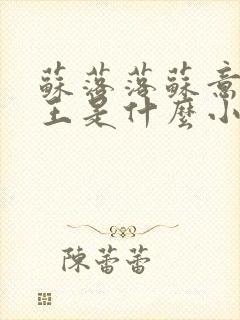 蘇落落蘇意
主是什麼小
陳蕾蕾